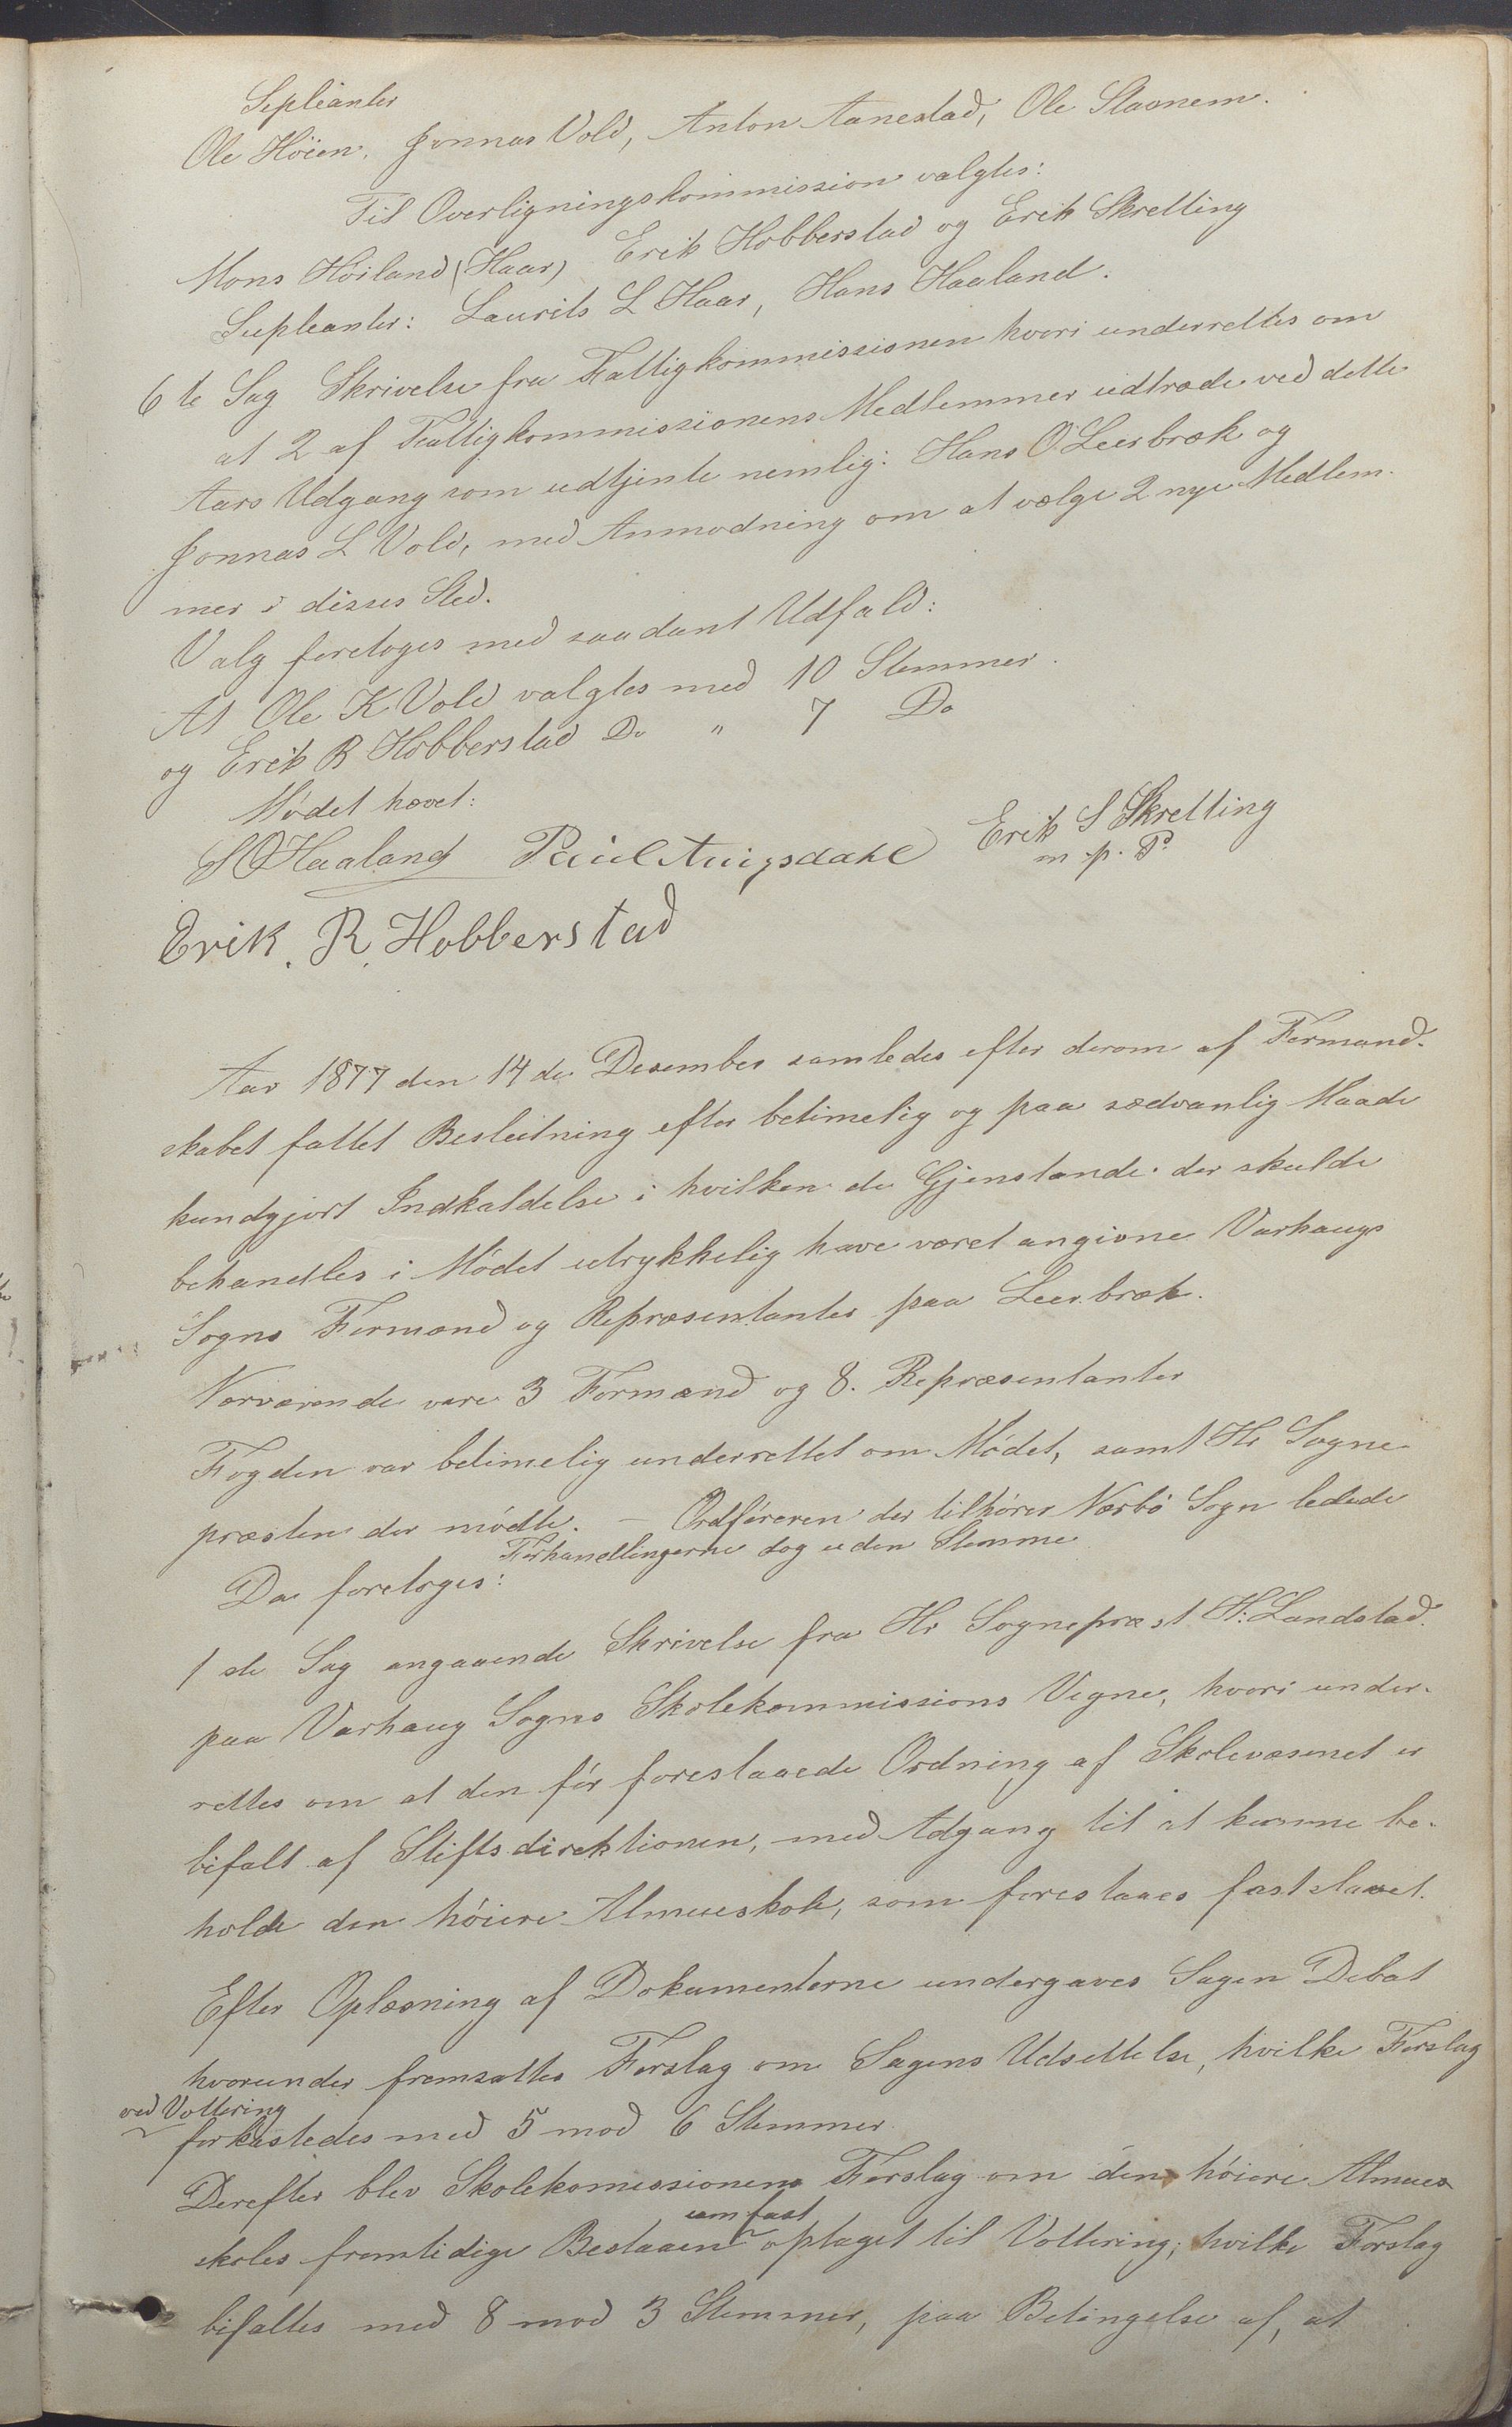 Sepleanter
Ole Höien, Jonnas Vold, Anton Aanestad, Ole Stavnem.
Til Overligningskommission valgtes:
Mons Höiland (Haar) Erik Hobberstad og Erik Skretting
Supleanter: Laurits L Haar, Hans Haaland.
6te Sag Skrivelse fra Fattigkommissionen hvori underrettes om
at 2 af Fattigkommissionens Medlemmer udtræde ved dette
Aars Udgang som udtjente nemlig: Hans O. Leerbræk og
Jonnas L Vold, med Anmodning om at vælge 2 nye Medlem-
mer i disses Sted.
Valg foretoges med saadant Udfald:
At Ole K Vold valgtes med 10 Stemmer.
og Erik R Hobberstad Do " 7 Do
Mödet hævet:
S O Haaland Paul Auigsdahl Erik S Skretting
m. p. P.
Erik. R. Hobberstad
Aar 1877 den 14de Desember samledes efter derom af Formand-
skabet fattet Beslutning efter betimelig og paa sædvanlig Maade
kundgjort Indkaldelse i hvilken de Gjenstande der skulde
behandles i Mödet udrykkelig have været angivne Varhaugs
Sogns Formænd og Repræsentanter paa Leerbræk.
Nærværende vare 3 Formænd og 8. Repræsentanter
Fogden var betimelig underrettet om Mödet, samt Hr Sogne-
præsten der mödte. — Ordföreren der tilhörer Nærbö Sogn ledede
Forhandlingerne dog uden Stemme
Da foretoges:
1ste Sag angaaende Skrivelse fra Hr Sognepræst H: Landstad.
paa Varhaug Sogns Skolekommissions Vegne, hvori under-
rettes om at den för foreslaaede Ordning af Skolevæsenet er
bifalt af Stiftsdirektionen, med Adgang til at kunne be-
holde den höiere Almueskole, som foreslaaes fastslaaet.
Efter Oplæsning af Dokumenterne undergaves Sagen Debat
hvorunder fremsattes Forslag om Sagens Udsettelse, hvilke Forslag
ved Vottering
forkastedes med 5 mod 6 Stemmer.
Derefter blev Skolekomissionens Forslag om den höiere Almues-
som fast
skoles fremtidige Bestaaen optaget til Vottering; hvilke Forslag
bifaltes med 8 mod 3 Stemmer, paa Betingelse af, at